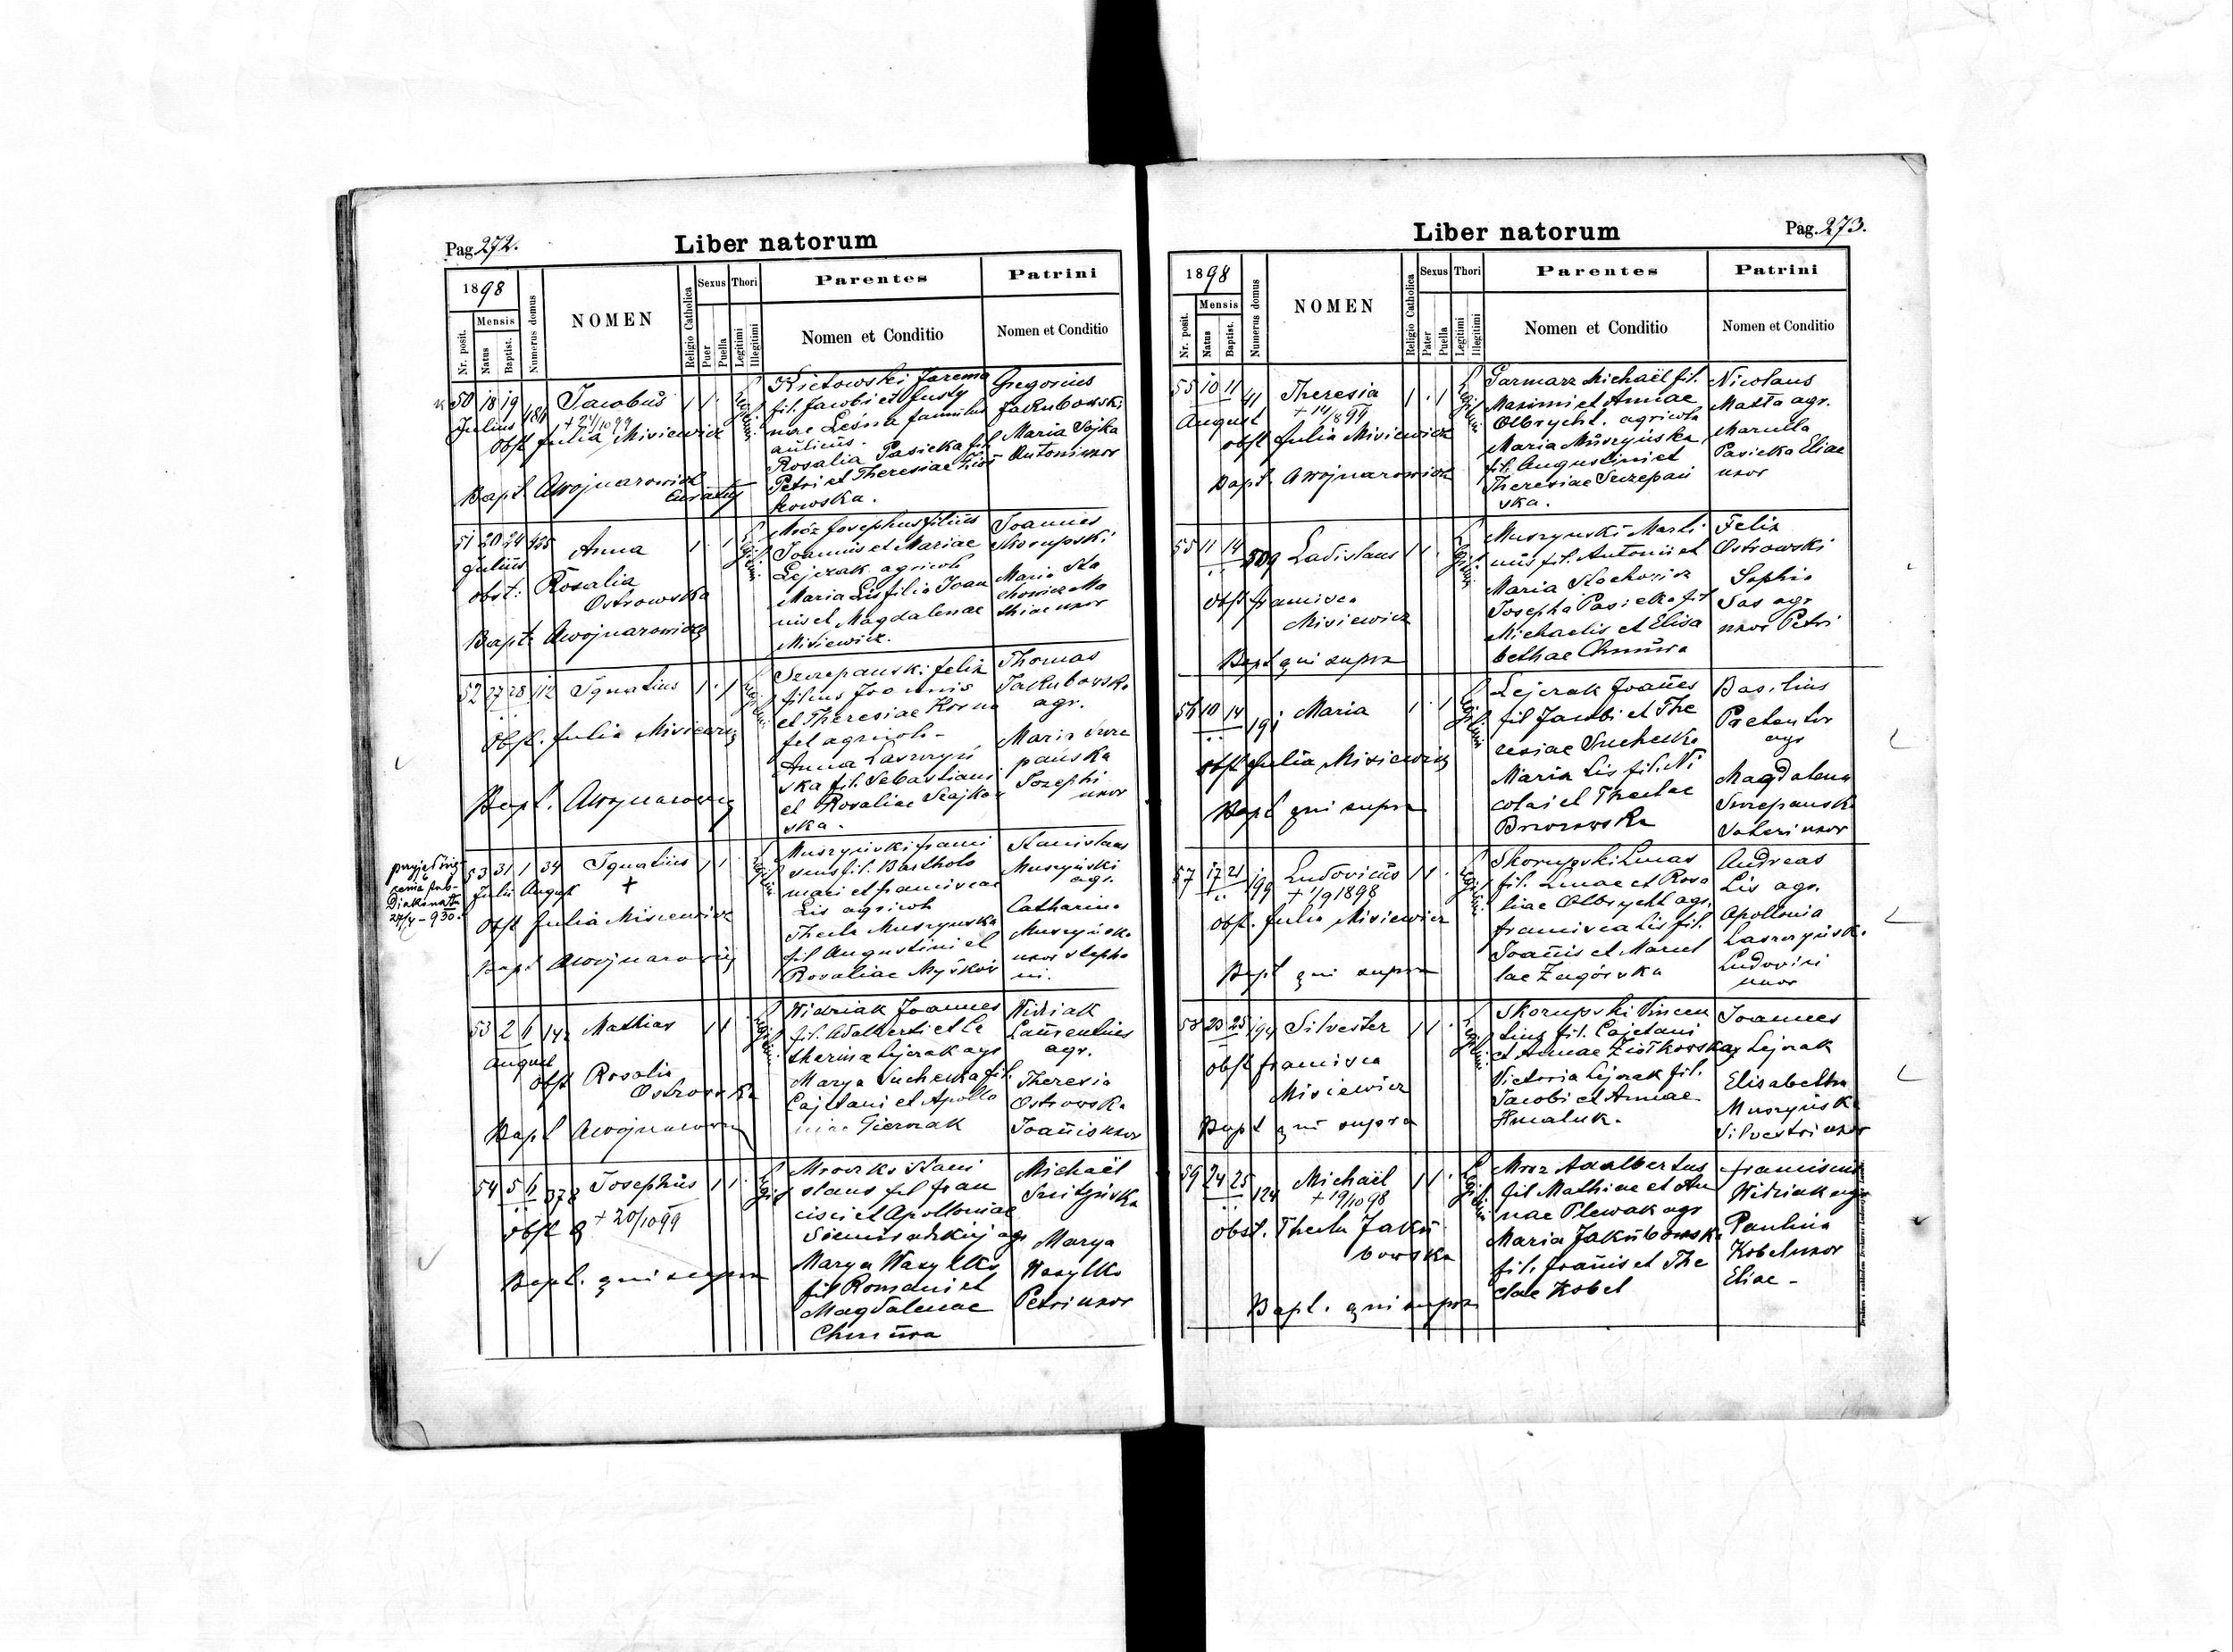 Pag. 272.
Liber natorum
1898
Nr. posit.
Mensis
Natus
Baptist.
Numerus domus
NOMEN
Religio Catholica
Sexus
Puer
Puella
Thori
Legitimi
Illegitimi
Parentes
Nomen et Conditio
Patrini
Nomen et Conditio
50 18 19 Jacobus 1 1
Julius + 24/10 99
Obst Julia Misiewicz
Bapt AWojnarowicz
Kietowski Jarema
fil. Jacobi et Justy
nae Leśna famulus
aulicus.
Rosalia Pasieka fil
Petri et Theresiae
kowska.
Gregorius
Jakubowski
Maria Sojka
Antoni uxor
51 20 24 Anna 1 1
Julius
obst: Rosalia
Ostrowska
Bapt: AWojnarowicz
Mróz Josephus filius
Joannis et Mariae
Lejczak agricola
Maria Lis filia Joan
nis et Magdalenae
Misiewicz.
Joannes
Skorupski
Maria Sta
chowicz Ma
thiae uxor
52 27 28 112 Ignatius 1 1
Obst. Julia Misiewicz
Bapt. AWojnarowicz
Szczepanski Felix
filius Joannis
et Theresiae
fel agricola
Anna Laszczyń
ska fil. Sebastiani
et Rosaliae
ska.
Thomas
Jakubowski
agr.
Maria Szcze
pańska
Josephi
uxor
53 31 1 34 Ignatius 1 1
Julii August +
Obst Julia Misiewicz
Bapt AWojnarowicz
27/4 - 930.
Muszyński Franci
scus fil. Bartholo
maei et Franciscae
Lis agricola
Thecla Muszynska
fil Augustini et
Rosaliae
Stanislaus
Muszyński
agr.
Catharina
Muszyńska
uxor Stepha
ni.
53 2 6 142 Mathias 1 1
August
Obst Rosalia
Ostrowska
Bapt AWojnarowicz
Widziak Joannes
fil. Adalberti et Ca
tharina Lejczak agr
Marya Suchecka fil.
Cajetani et Apollo
niae
Widziak
Laurentius
agr.
Theresia
Ostrowska
Joannis uxor
54 5 6 378 Josephus 1 1
+ 20/10 99
Obst
Bapt. qui supra
Mroczko Stani
slaus fil Fran
cisci et Apolloniae
agr
Marya Wasylko
fil Romani et
Magdalenae
Chmura
Michaël
Marya
Wasylko
Petri uxor
Pag. 273.
Liber natorum
1898
Nr. posit.
Mensis
Natus
Baptist.
Numerus domus
NOMEN
Religio Catholica
Sexus
Pater
Puella
Thori
Legitimi
Illegitimi
Parentes
Nomen et Conditio
Patrini
Nomen et Conditio
55 10 11 41 Theresia 1 1
August + 14/8 99
Obst Julia Misiewicz
Bapt AWojnarowicz
Garmarz Michaël fil.
Maximi et Annae
Olbrycht. agricola
Maria Muszyńska
fil. Augustini et
Theresiae Szczepań
ska.
Nicolaus
Matta agr.
Marcella
Pasieka Eliae
uxor
55 11 14 Ladislaus 1 1
Obst Francisca
Misiewicz
Bapt qui supra
Muszynski Marti
nus fil. Antonii et
Maria Stachowicz
Josepha Pasieka fil
Michaelis et Elisa
bethae Chmura
Felix
Ostrowski
Sophia
Sas agr
uxor Petri
56 10 14 191 Maria 1 1
Obst Julia Misiewicz
Bapt qui supra
Lejczak Joañes
fil Jacobi et The
resiae Suchecka
Maria Lis fil. Ni
colai et Theclae
Brzozowska
Basilius
Pretentor
agr
Magdalena
Szczepanska
Valeri uxor
57 17 21 199 Ludovicus 1 1
+ 1/9 1898
Obst. Julia Misiewicz
Bapt qui supra
Skorupski Lucas
fil. Lucae et Rosa
liae Olbrycht agr.
Francisca Lis fil.
Joañis et Marcel
lae Zagórska
Andreas
Lis agr.
Apollonia
Laszczyńska
Ludovici
uxor
58 23 25 194 Silvester 1 1
Obst Francisca
Misiewicz
Bapt qui supra
Skorupski Vincen
tius fil. Cajetani
et Annae Ziółkowska
Victoria Lejczak fil.
Jacobi et Annae
Hnatuk.
Joannes
Lejczak
Elisabetha
Muszyńska
Silvestri uxor
59 24 25 124 Michaël 1 1
+ 19/10 98
Obst. Thecla Jaku
bowska
Bapt. qui supra
Mroz Adalbertus
fil Mathiae et An
nae Plewak agr
Maria Jakubowska
fil. Joañis et The
clae Kobel
Franciscus
Widziak agr
Paulina
Kobel uxor
Eliae -